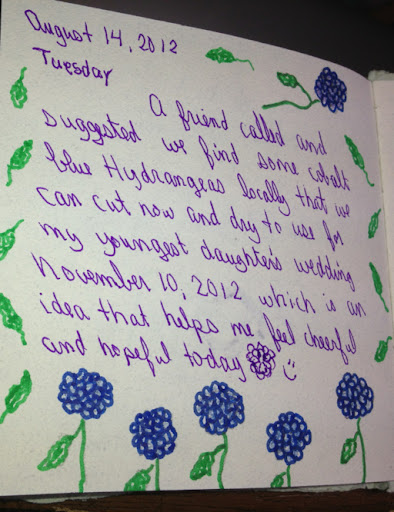 August 14, 2012
Tuesday
A friend called and
suggested we find some cobalt
blue Hydrangeas locally that we
can cut now and dry to use for
my youngest daughter's wedding
November 10, 2012 which is an
idea that helps me feel cheerful
and hopeful today